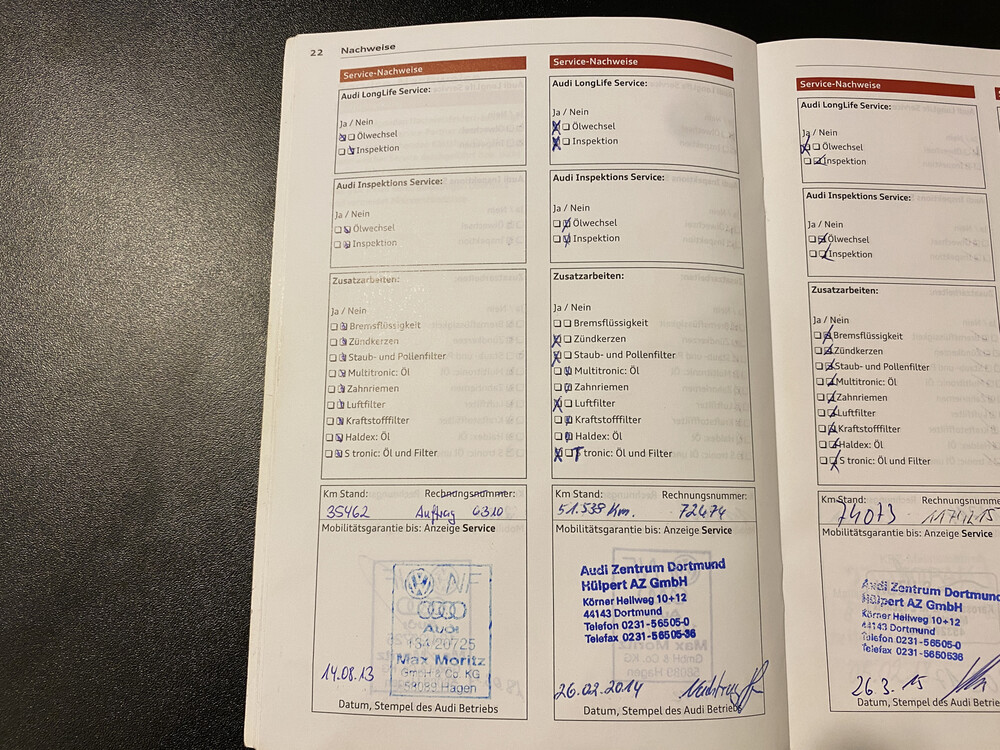 22 Nachweise
Service-Nachweise
Audi LongLife Service:
Ja / Nein
Ölwechsel
Inspektion
Audi Inspektions Service:
Ja / Nein
Ölwechsel
Inspektion
Zusatzarbeiten:
Ja / Nein
Bremsflüssigkeit
Zündkerzen
Staub- und Pollenfilter
Multitronic: Öl
Zahnriemen
Luftfilter
Kraftstofffilter
Haldex: Öl
S tronic: Öl und Filter
Km Stand: Rechnungsnummer:
35462 Auftrag 6310
Mobilitätsgarantie bis: Anzeige Service
Audi
Max Moritz
GmH & Co. KG
58089 Hagen
14.08.13
Datum, Stempel des Audi Betriebs
Service-Nachweise
Audi LongLife Service:
Ja / Nein
Ölwechsel
Inspektion
Audi Inspektions Service:
Ja / Nein
Ölwechsel
Inspektion
Zusatzarbeiten:
Ja / Nein
Bremsflüssigkeit
Zündkerzen
Staub- und Pollenfilter
Multitronic: Öl
Zahnriemen
Luftfilter
Kraftstofffilter
Haldex: Öl
S tronic: Öl und Filter
Km Stand: Rechnungsnummer:
51.538 km. 72474
Mobilitätsgarantie bis: Anzeige Service
Audi Zentrum Dortmund
Hülpert AZ GmbH
Körner Hellweg 10+12
44143 Dortmund
Telefon 0231-56505-0
Telefax 0231-56505-36
26.02.2014
Datum, Stempel des Audi Betriebs
Service-Nachweise
Audi LongLife Service:
Ja / Nein
Ölwechsel
Inspektion
Audi Inspektions Service:
Ja / Nein
Ölwechsel
Inspektion
Zusatzarbeiten:
Ja / Nein
Bremsflüssigkeit
Zündkerzen
Staub- und Pollenfilter
Multitronic: Öl
Zahnriemen
Luftfilter
Kraftstofffilter
Haldex: Öl
S tronic: Öl und Filter
Km Stand: Rechnungsnumme
74073
Mobilitätsgarantie bis: Anzeige Service
Audi Zentrum Dortmund
Hülpert AZ GmbH
Körner Hellweg 10+12
44143 Dortmund
Telefon 0231-56505-0
Telefax 0231-5650536
26 3. 15
Datum, Stempel des Audi Betriebs